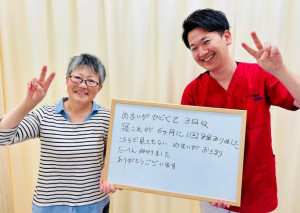 めまいがひどくて 3日位
寝こむが 6ヶ月に1回 ありました
こちらで見てもらい めまいがおさまり
たいへん 助かりました
ありがとうございます